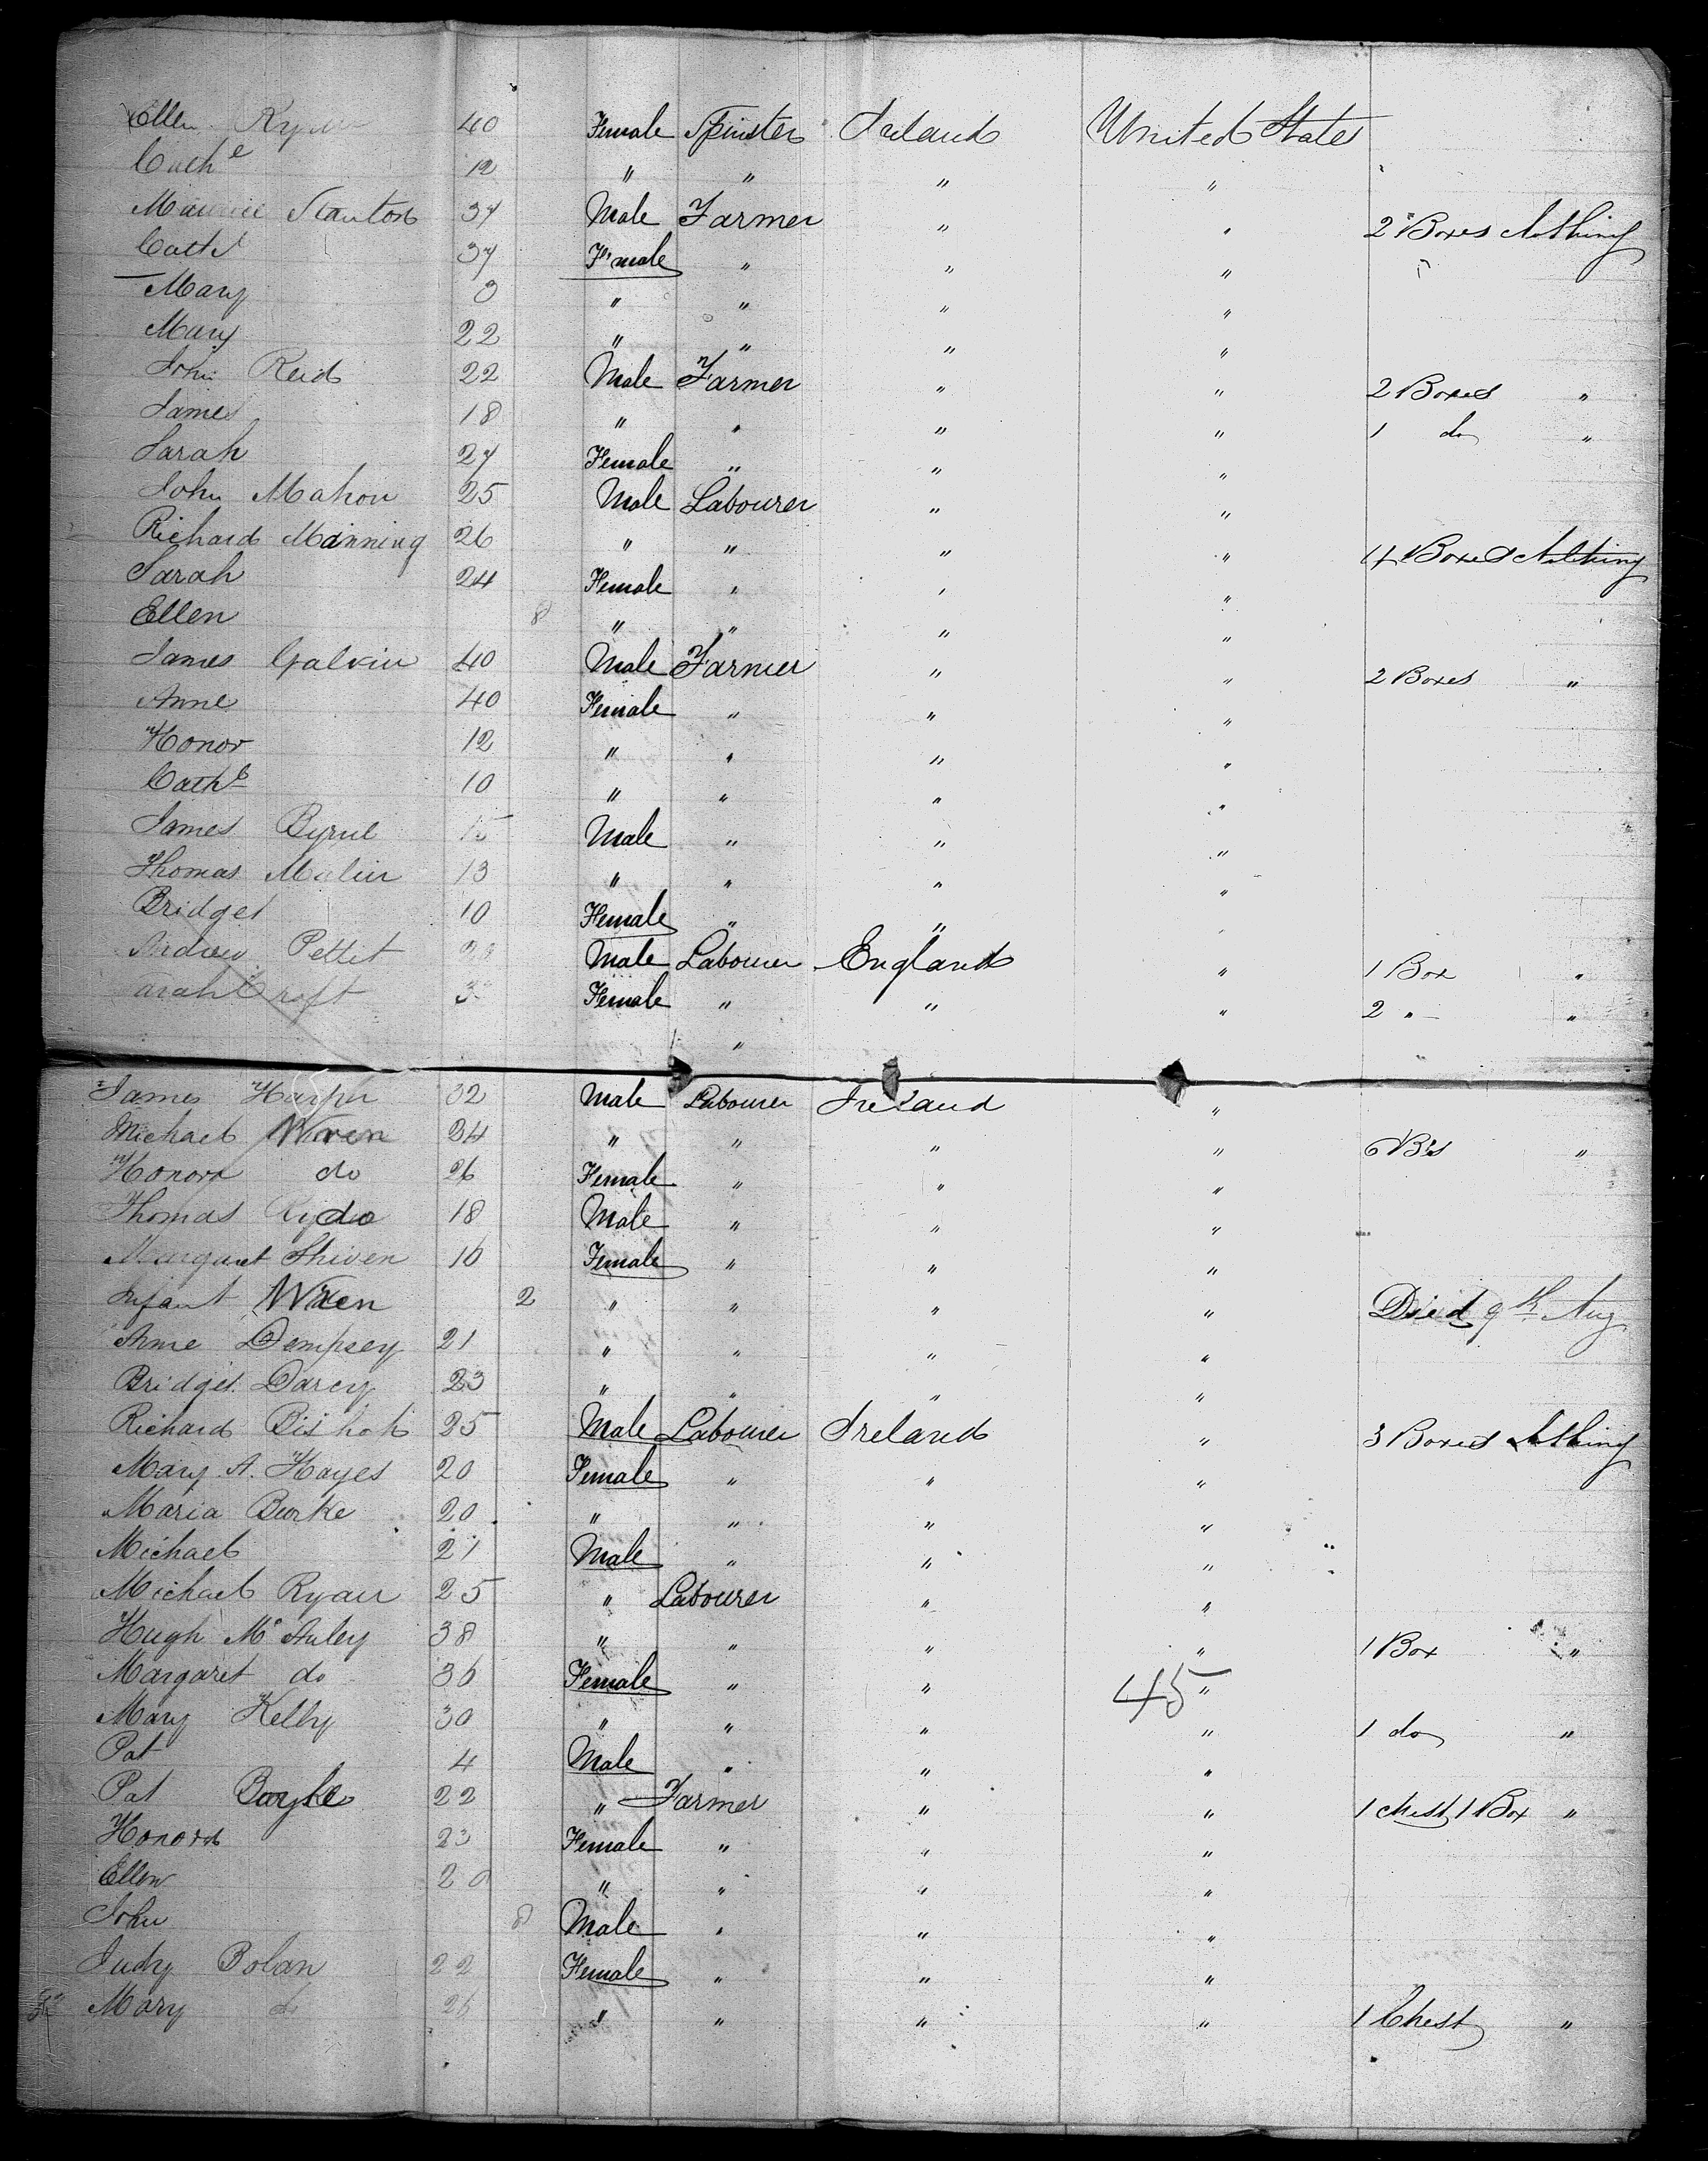 Ellen Ryan 40 Female Spinster Ireland United States
Cathe 12 " " " "
Maurice Stanton 37 Male Farmer " " 2 Boxes Clothing
Cathe 37 Female " " " "
Mary " " " "
Mary 22 " " " "
John Reid 22 Male Farmer " " 2 Boxes "
James 18 " " " " 1 do "
Sarah 27 Female " " "
John Mahon 25 Male Labourer " "
Richard Manning 26 " " " " 4 Boxes Clothing
Sarah 24 Female " " "
Ellen 8 " " " "
James Galvin 40 Male Farmer " " 2 Boxes "
Anne 40 Female " " "
Honor 12 " " " "
Cathe 10 " " " "
James Byrne 15 Male " " "
Thomas 13 " " " "
Bridget 10 Female " " "
Andrew Pettit Male Labourer England " 1 Box "
Sarah Craft Female " " " 2 " "
"
James Harper 32 Male Labourer Ireland "
Michael Wren 34 " " " " 6 Bxs "
Honora do 26 Female " " "
Thomas do 18 Male " " "
Margaret 16 Female " " "
Infant Wren 2 " " " " Died 9th Aug
Anne Dempsey 21 " " " "
Bridget Darcy 23 " " " "
Richard Bishop 25 Male Labourer Ireland " 3 Boxes Clothing
Mary A. Hayes 20 Female " " "
Maria Burke 20 " " " "
Michael 21 Male " " "
Michael Ryan 25 " Labourer " "
Hugh McAuley 38 " " " " 1 Box "
Margaret do 36 Female " " " 45
Mary Kelly 30 " " " " 1 do "
Pat 4 Male " " "
Pat Boyle 22 " Farmer " " 1 chest 1 Box "
Honora 23 Female " " "
Ellen 20 " " " "
John 8 Male " " "
Judy Bolan 22 Female " " "
Mary do 26 " " " " 1 Chest "